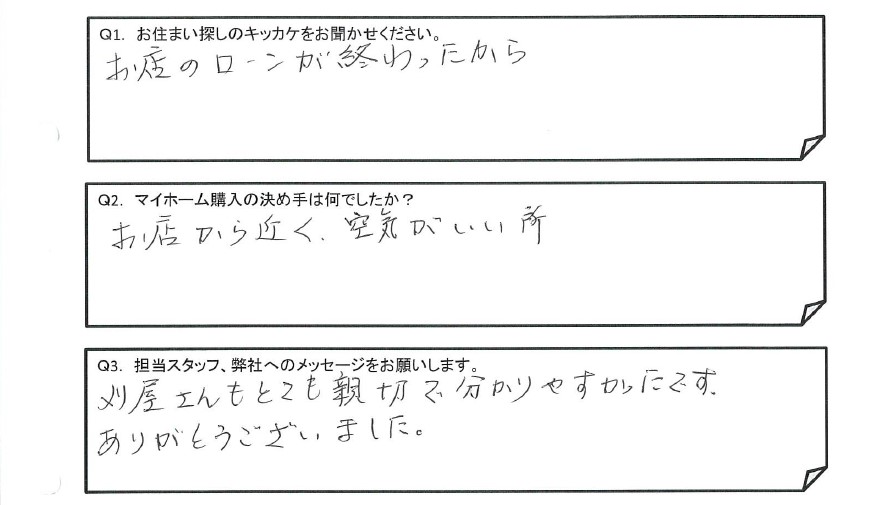 Q1. お住まい探しのキッカケをお聞かせください。
お店のローンが終わったから
Q2. マイホーム購入の決め手は何でしたか？
お店から近く、空気がいい所
Q3. 担当スタッフ、弊社へのメッセージをお願いします。
刈屋さんもとても親切で分かりやすかったです.
ありがとうございました。